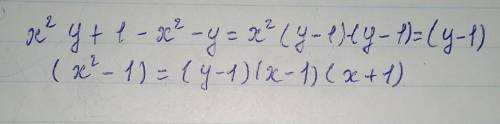 x² y + 1 - x² - y = x² (y-1)-(y-1)=(y-1)
(x²-1) = (y-1)(x-1)(x+1)